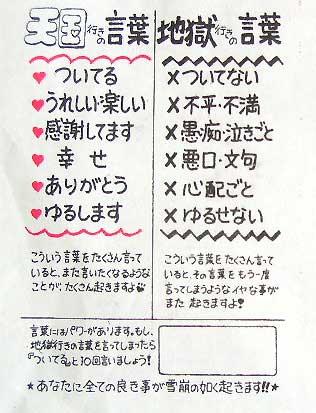 天国行きの言葉
♥ ついてる
♥ うれしい・楽しい
♥ 感謝してます
♥ 幸せ
♥ ありがとう
♥ ゆるします
こういう言葉をたくさん言って
いると、また言いたくなるような
ことが、たくさん起きますよ
地獄行きの言葉
× ついてない
× 不平・不満
× 愚痴・泣きごと
× 悪口・文句
× 心配ごと
× ゆるせない
こういう言葉をたくさん言って
いると、その言葉をもう一度
言ってしまうようなイヤな事が
また起きますよ!
言葉にはパワーがあります。もし、
地獄行きの言葉を言ってしまったら
『ついてる』と10回言いましょう!
★あなたに全ての良き事が雪崩の如く起きます!!★